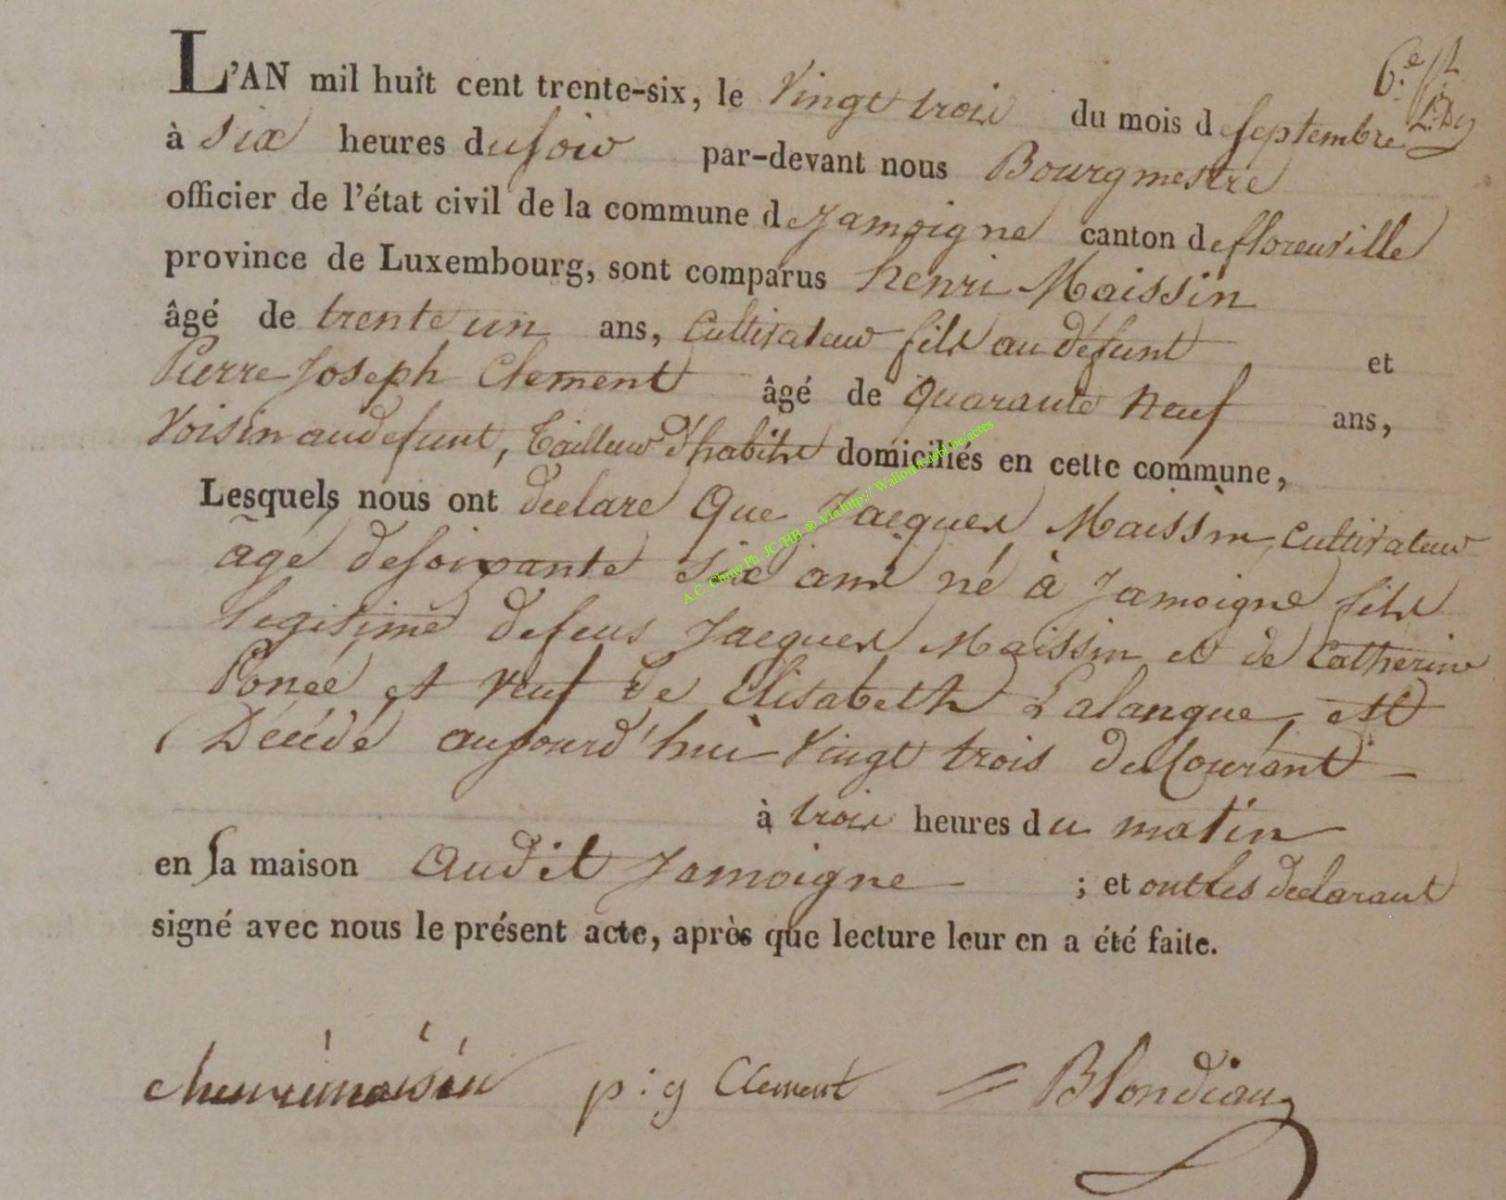 L'AN mil huit cent trente-six, le Vingt trois du mois de septembre
à six heures du soir par-devant nous Bourgmestre
officier de l'état civil de la commune de Jamoigne canton de florenville
province de Luxembourg, sont comparus henri Maissin
âgé de trente un ans, Cultivateur fils au défunt et
Pierre Joseph Clement âgé de Quarante Neuf ans,
Voisin au defunt, Tailleur d'habits domiciliés en cette commune,
Lesquels nous ont declare Que Jacques Maissin Cultivateur
agé de soixante six ans né à Jamoigne fils
legitime de feus Jacques Maissin et de Catherine
Poncé et veuf de Elisabeth Lalangue, est
Décédé aujourd'hui Vingt trois du Courant
à trois heures du matin
en sa maison Audit Jamoigne ; et ont les declarant
signé avec nous le présent acte, après que lecture leur en a été faite.
henri maisin p:g Clement = Blondiau